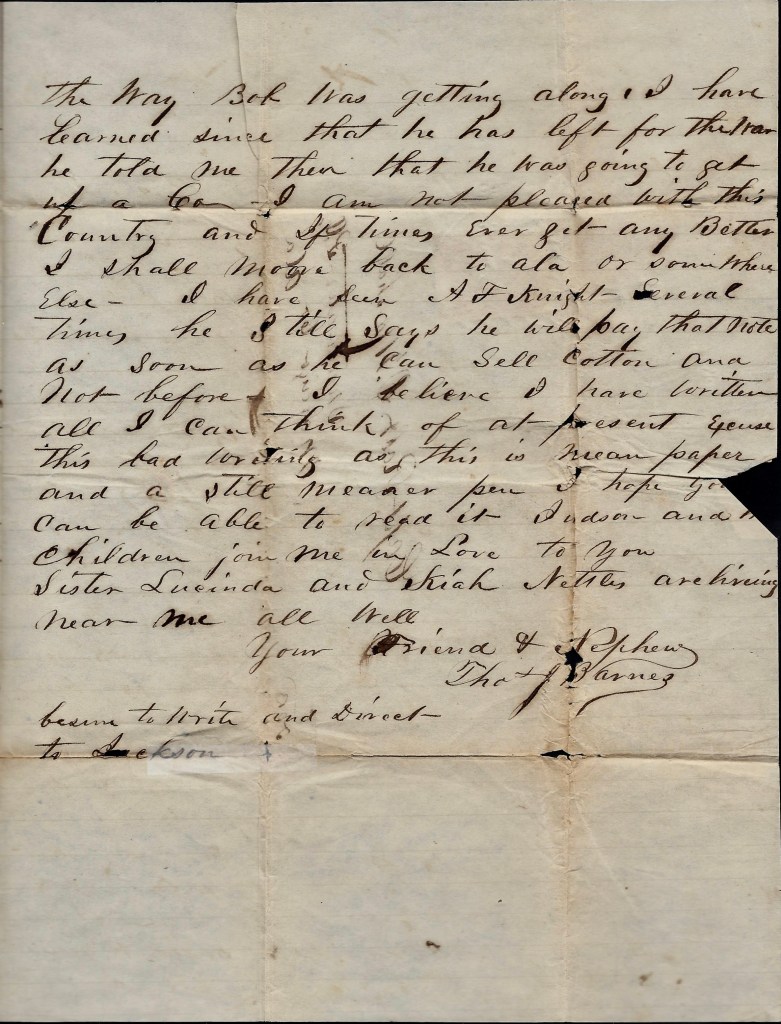 the Way Bob Was getting along, I have
learned since that he has left for the War
he told me then that he was going to get
up a Co — I am not pleased with this
Country and If times Ever get any Better
I shall Moove back to ala or somewhere
Else — I have seen A F Knight Several
times he Still Says he will pay that Note
as soon as he can Sell Cotton and
Not before — I believe I have written
all I can think of at present Excuse
this bad writing as this is mean paper
and a still meaner pen I hope you
can be able to read it Judson and
Children join me in Love to You
Sister Lucinda and Kiah Nettles are living
near me all Well
Your Friend & Nephew
Thos J Barnes
besure to Write and Direct
to Jackson